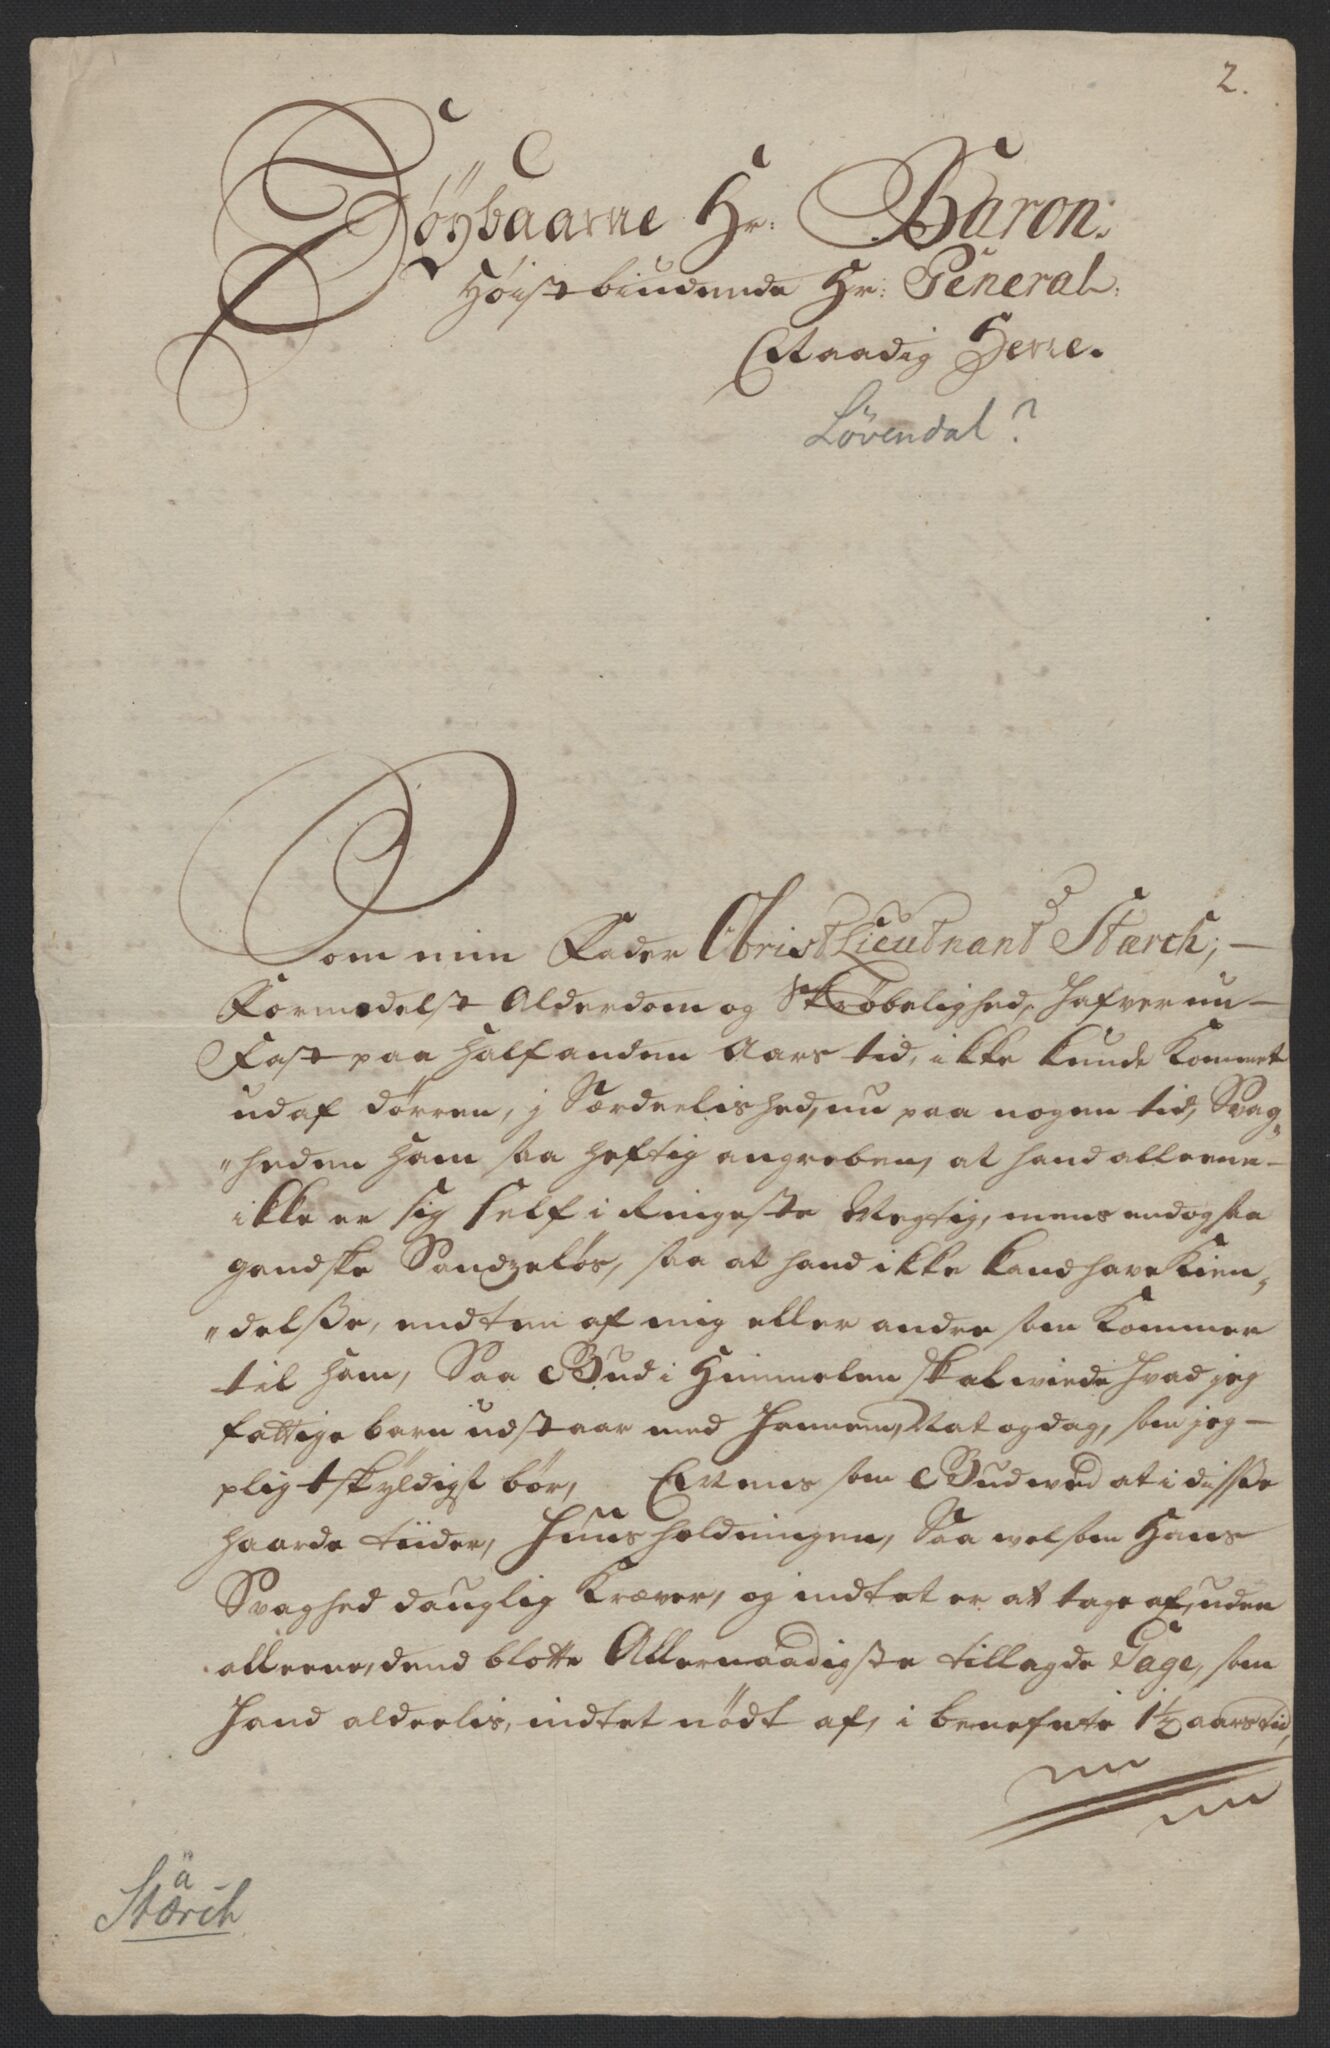 2.
Höybaarne Hr: Baron:
Höist biudende Hr: General.
Naadig Herre.
Lövendal?
Som min Fader Obrist Lieutnant Stærch; —
Formedelst Alderdom og Skröbelighed, hafver nu —
Fast paa Half anden Aars tid, ikke kunde Kommet
ud af dörren, j Særdeelished, nu paa nogen tid, Svag„
„heden Ham saa heftig angreben, at hand alleene —
ikke er sig self i Ringeste Megtig, mens endog saa
gandske Sandzelös, saa at hand ikke kand have Kien„
„delsße, endten af mig eller andre som Kommer
til Ham, Saa Gud i Himmelen skal viede hvad jeg
fattige barn udstaar med Hannem, Nat og dag, som jeg —
pligtskyldigst bör, Evens som Gud ved at i disße
haarde tiider, Huusholdningen, Saa vel som Hans
Svaghed dauglig Kræver, og indtet er at tage af, uden
alleene, dend blotte Allernaadigste tillagde Gage, som
Hand alderlis, indtet nödt af, i benefnte 1½ aars tid,
nu
nu
a
Stærch